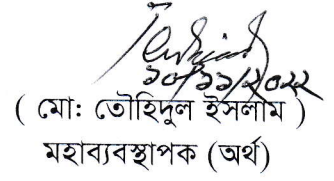 ১০/১১/২০২২
( মো: তৌহিদুল ইসলাম )
মহাব্যবস্থাপক (অর্থ)